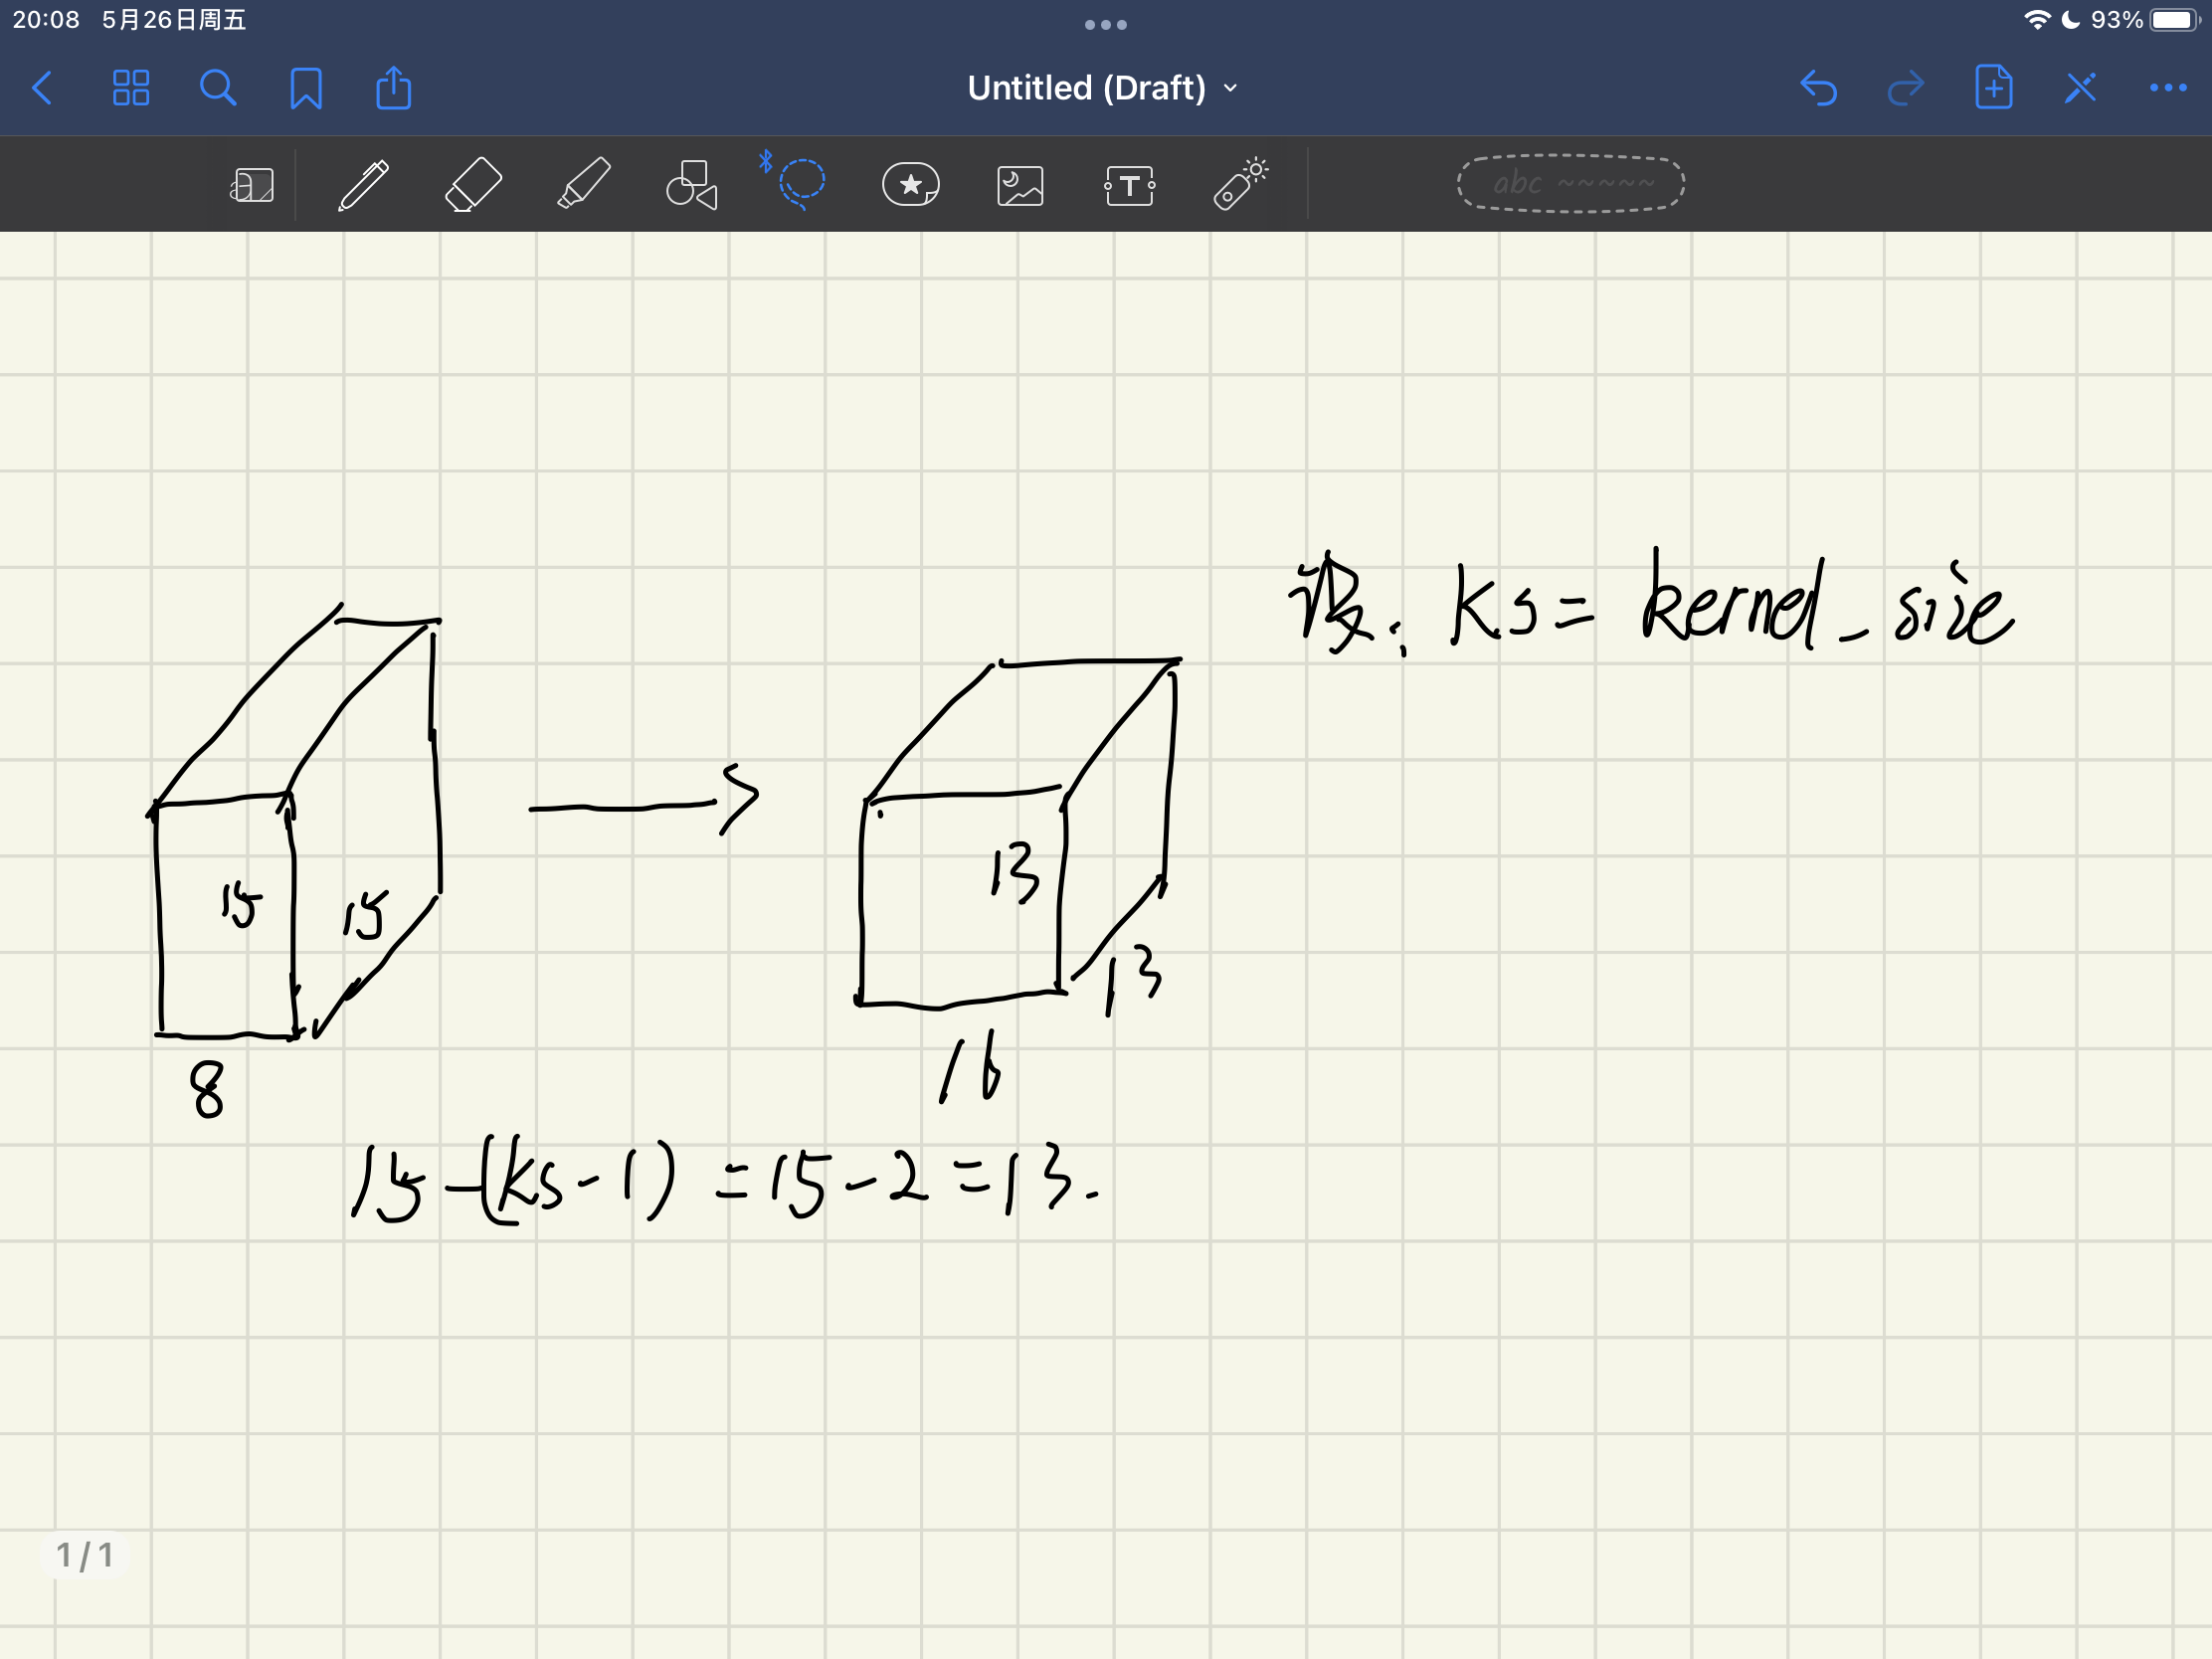 20:08 5月26日周五
93%
Untitled (Draft)
abc
设: Ks = kernel_size
15 15
8
13
13
16
15-(ks-1) = 15-2 = 13.
1 / 1